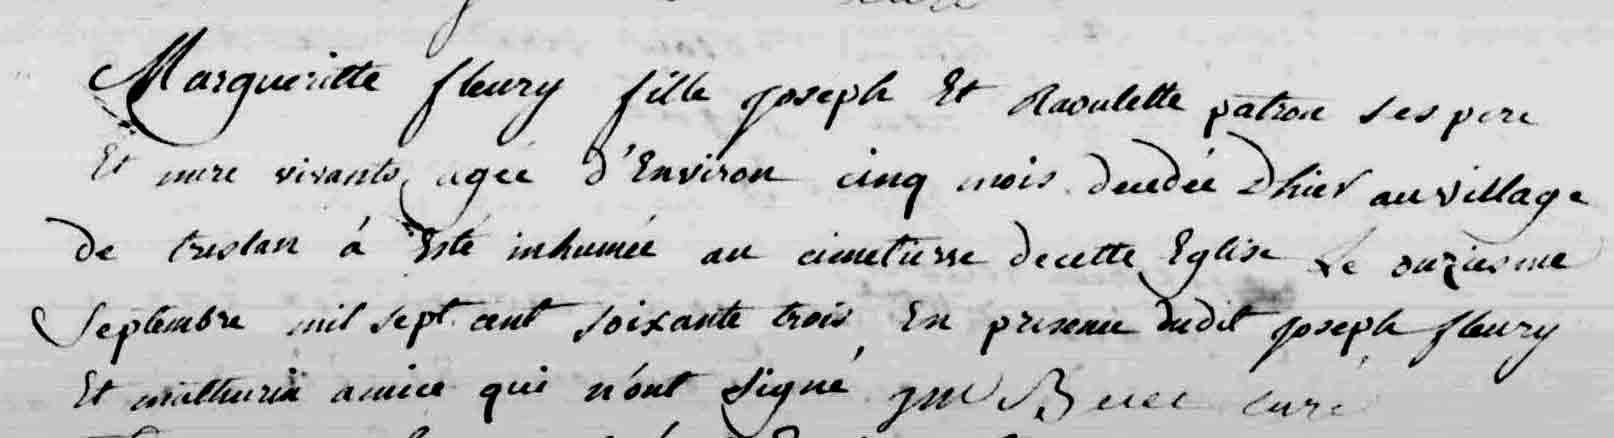 Margueritte fleury fille joseph Et Raoulette patron ses pere
Et mere vivants, agée d'Environ cinq mois decedée D'hier au village
de trestan á Esté inhumée au cimetierre decette Eglise Le onziesme
Septembre mil sept cent soixante trois En presence dudit joseph fleury
Et mathurin amice qui n'ont signé curé